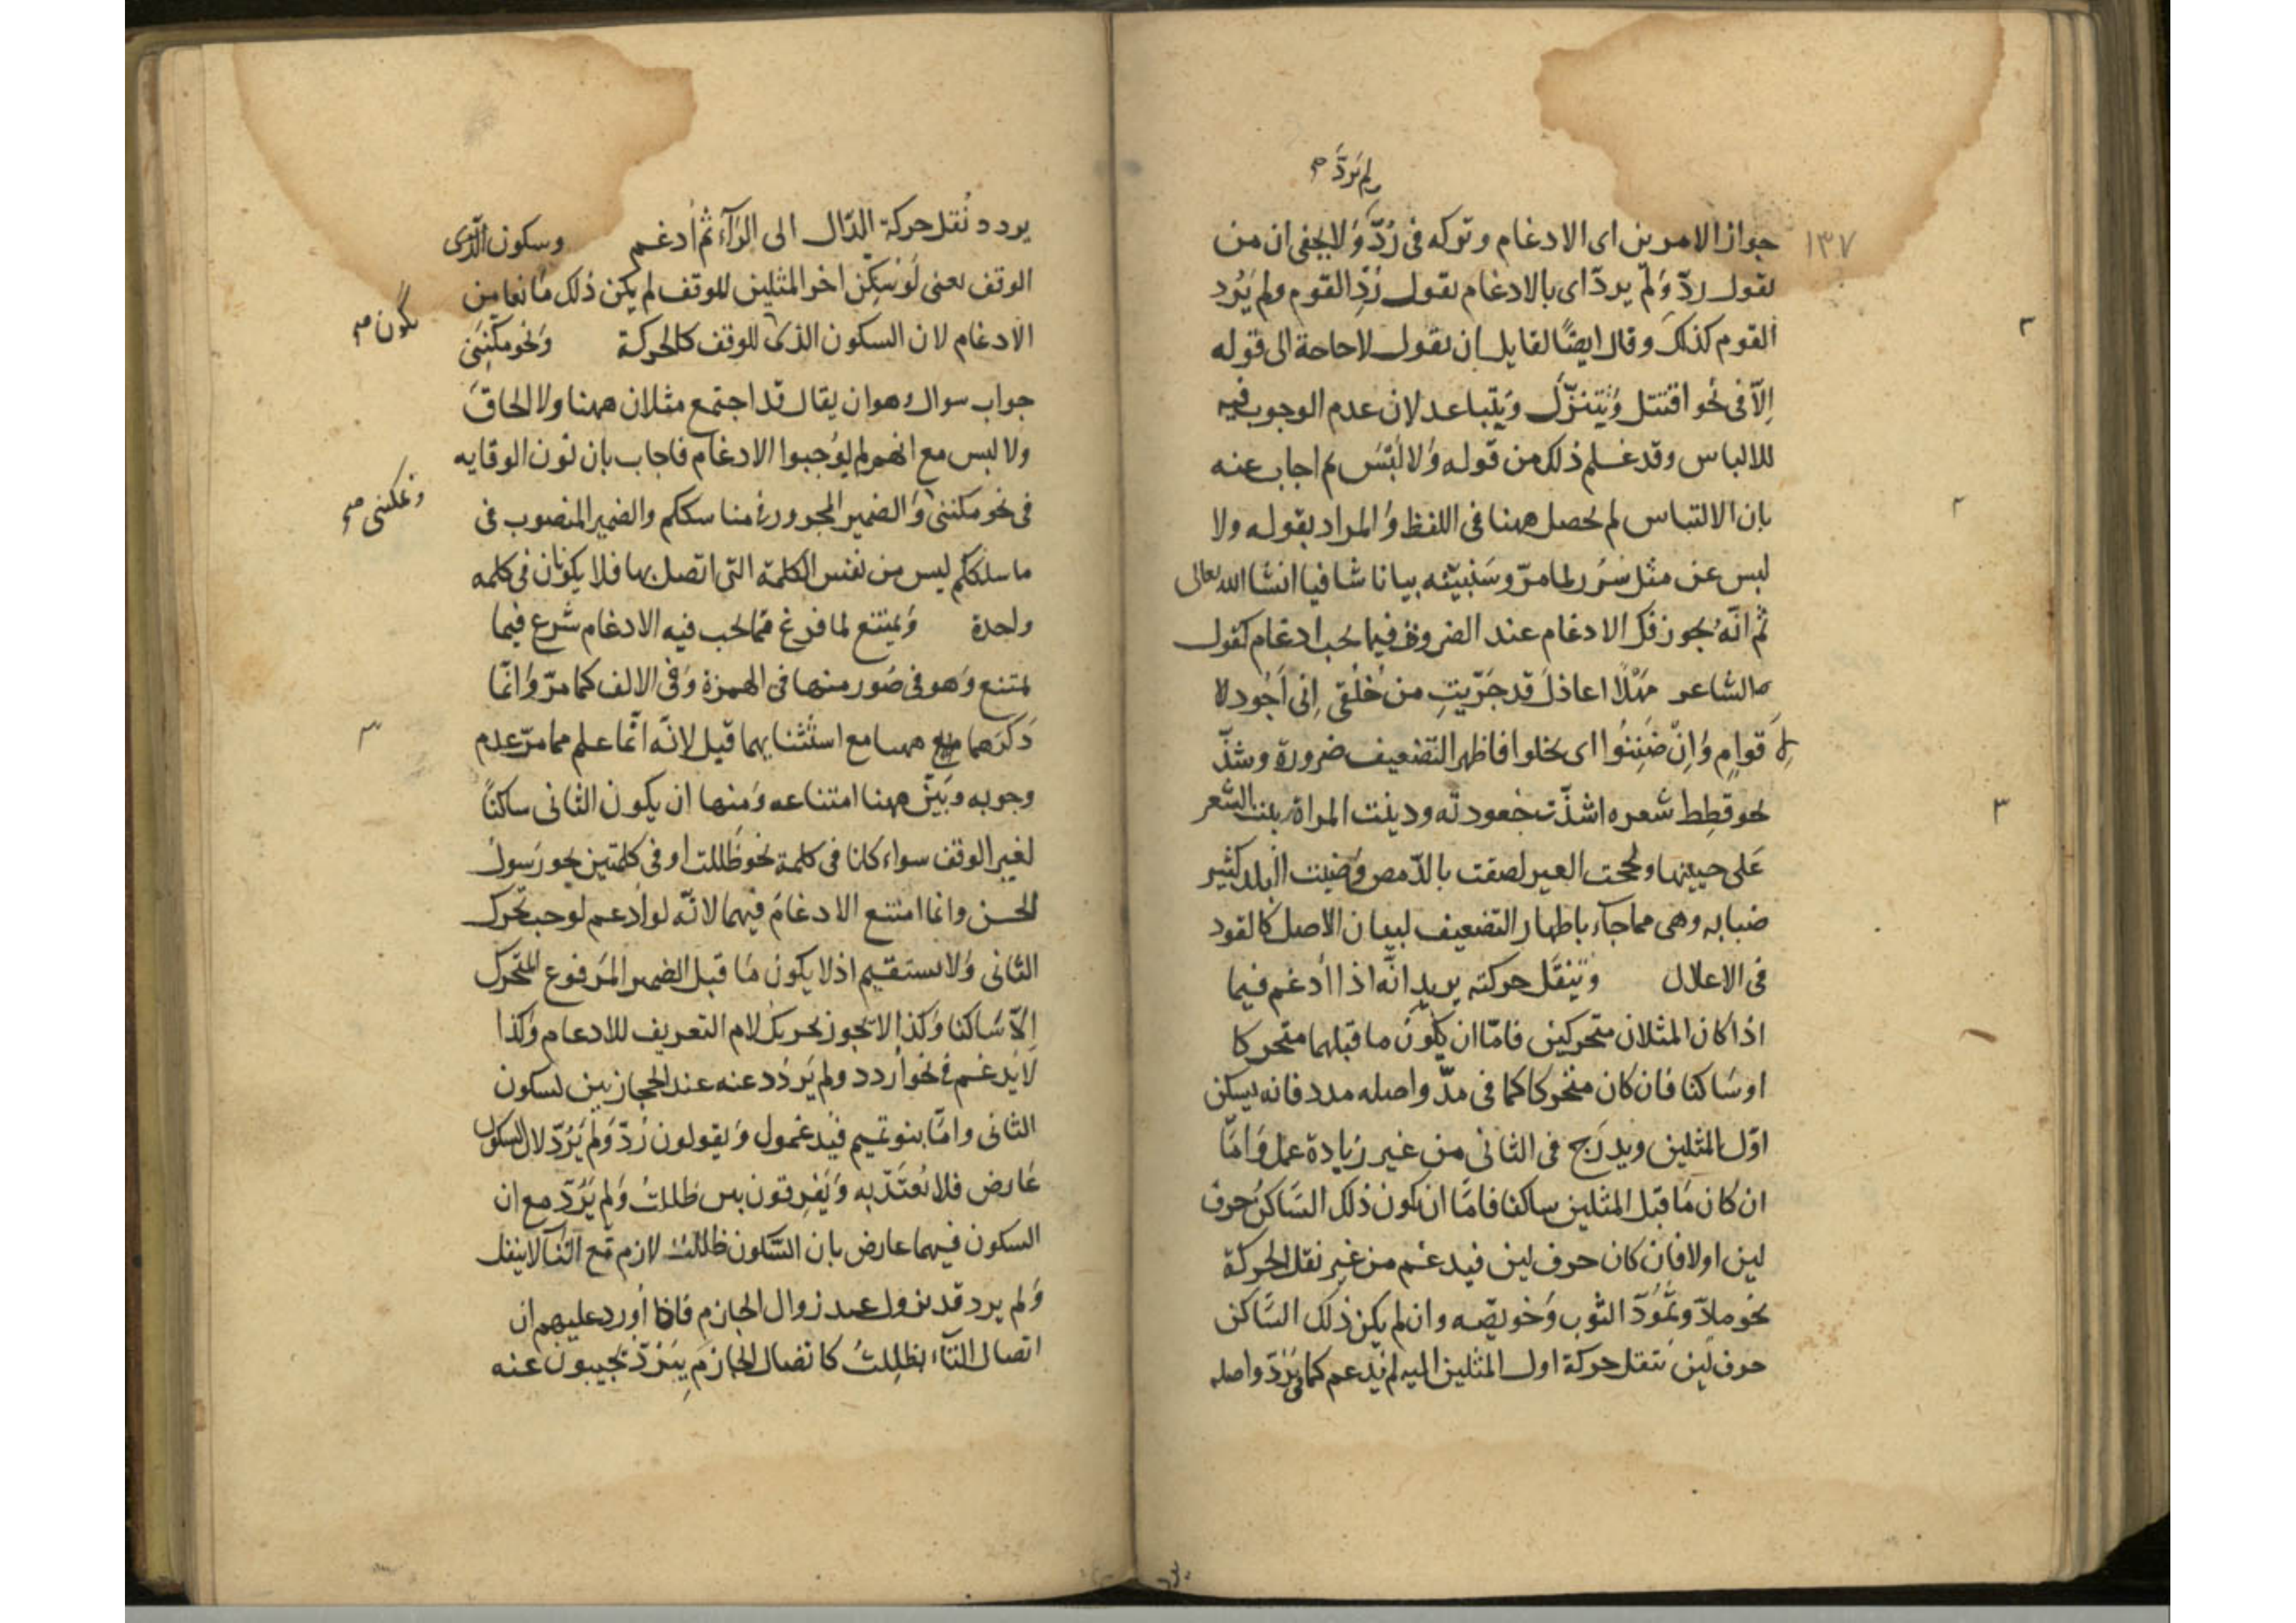 ولم يَردَّ صح
١٣٧
جواز الامرين اى الادغام وتركه فى رُدَّ وَلا يخفى ان من
يقول ردّ وَلمْ يردّ اى بالادغام يقول رُدِّ القوم ولم يَرُد
القوم كذلك وقال ايضًا لقايل ان يقول لا حاجة الى قوله
اِلّا فى نحو اقتتل وَتتنزّل وَتتباعد لان عدم الوجوب فيه
للالباس وقد علم ذلك من قوله وَلا لَبْسَ ثم اجاب عنه
بان الالتباس لم يحصل ههنا فى اللفظ وَالمراد بقوله ولا
لبس عن مثل سُرُر لما مرّ وسَنبيّنه بيانا شافيا انشا الله تعالى
ثم انّه يجوز فك الادغام عند الضرورة فيما يجب ادغام كقول
الشاعر مَهْلًا اعاذلَ قد جَرّبتِ من خُلُقى اِنى اَجُود لا
قوامٍ وَاِنْ ضَنِنُوا اى بخلوا فاظهر التضعيف ضرورة وشذّ
نحو قطِط شعره اشتدّت جعودته ودببت المراة نبت الشعر
عَلى جبينها ولححت العين لصقت بالرّمص وَضببت البلد كثير
ضبابه وهى مما جآء باظهار التضعيف لبيان الاصل كالقود
فى الاعلال وَتنقل حركته يريد انّه اذا اُدغم فيما
اذا كان المثلان متحركين فامّا ان يكون ما قبلهما متحركا
او سَاكنا فان كان متحركا كما فى مدّ واصله مدد فانه يسكن
اوّل المثلين ويدرَج فى الثانى من غير زيادة عمل وَامّا
ان كان مَا قبل المثلين ساكنا فامّا ان يكون ذلك السَّاكنُ حرف
لين او لا فان كان حرف لين فيدغم من غير نقل الحركة
نحو مادّ وتُمُودّ الثوب وَخويصّه وان لم يكن ذلك السَّاكن
حرف لين تنقل حركة اول المثلين اليه ثم يُدغم كما فى يَرُدّ واصله
يردد نُقل حركة الدّال الى الرّآء ثم اُدغم وسكون الذى
الوقف يعنى لَوْ سُكّن اخر المثلين للوقف لم يكن ذلك مَانعا من
الادغام لان السكون الذى للوقف كالحركة وَنحو مكّننى
يكون صح
جواب سوال وهو ان يقال قد اجتمع مثلان ههنا ولا الحاقَ
ولا لبس مع انهم لم يُوجبوا الادغام فاجاب بان نون الوقايه
فى نحو مكننى وَالضمير المجرور فى مناسككم والضمير المنصوب فى
وتمكننى صح
ما سلككم ليس من نفس الكلمة التى اتصل بها فلا يكونان فى كلمه
واحدة وَيمتنع لما فرغ ممّا يجب فيه الادغام شرع فيما
يمتنع وَهو فى صُور منها فى الهمزة وَفى الالف كما مرّ وَانمّا
ذكرهما ههنا مع استثنايهما قبل لانّه انّما علم مما مرّ عدم
وجوبه وبَيّن ههنا امتناعه وَمنها ان يكون الثانى ساكناً
لغير الوقف سواء كانا فى كلمة نحو ظَللت او فى كلمتين نحو رَسول
الحسن وانما امتنع الادغامُ فيهما لانّه لو اُدغم لوجب تحرك
الثانى وَلا يستقيم اذ لا يكون مَا قبل الضمير المَرفوع المتحرك
اِلاّ سَاكنا وَكذا لا يجوز تحريك لام التعريف للادغام وَكذا
لَا يُدغم فى نحو اُردد ولم يَردُد عنه عند الحجازيين لسكون
الثانى وامّا بنو تميم فيدغمون وَيقولون رُدَّ وَلم يَرُدّ لان السكون
عَارض فلا يُعتَدّ به وَيُفرقون بين ظللتُ وَلم يَرُدّ مع ان
السكون فيهما عارض بان السّكون ظللت لازم مَع التآ لا ينفك
وَلم يرد قد يزول عند زوال الجازم فاذا اُورد عليهم ان
اتصال التآء بظلِلتُ كاتصال الجازمِ بِيَرُدّ يجيبون عنه